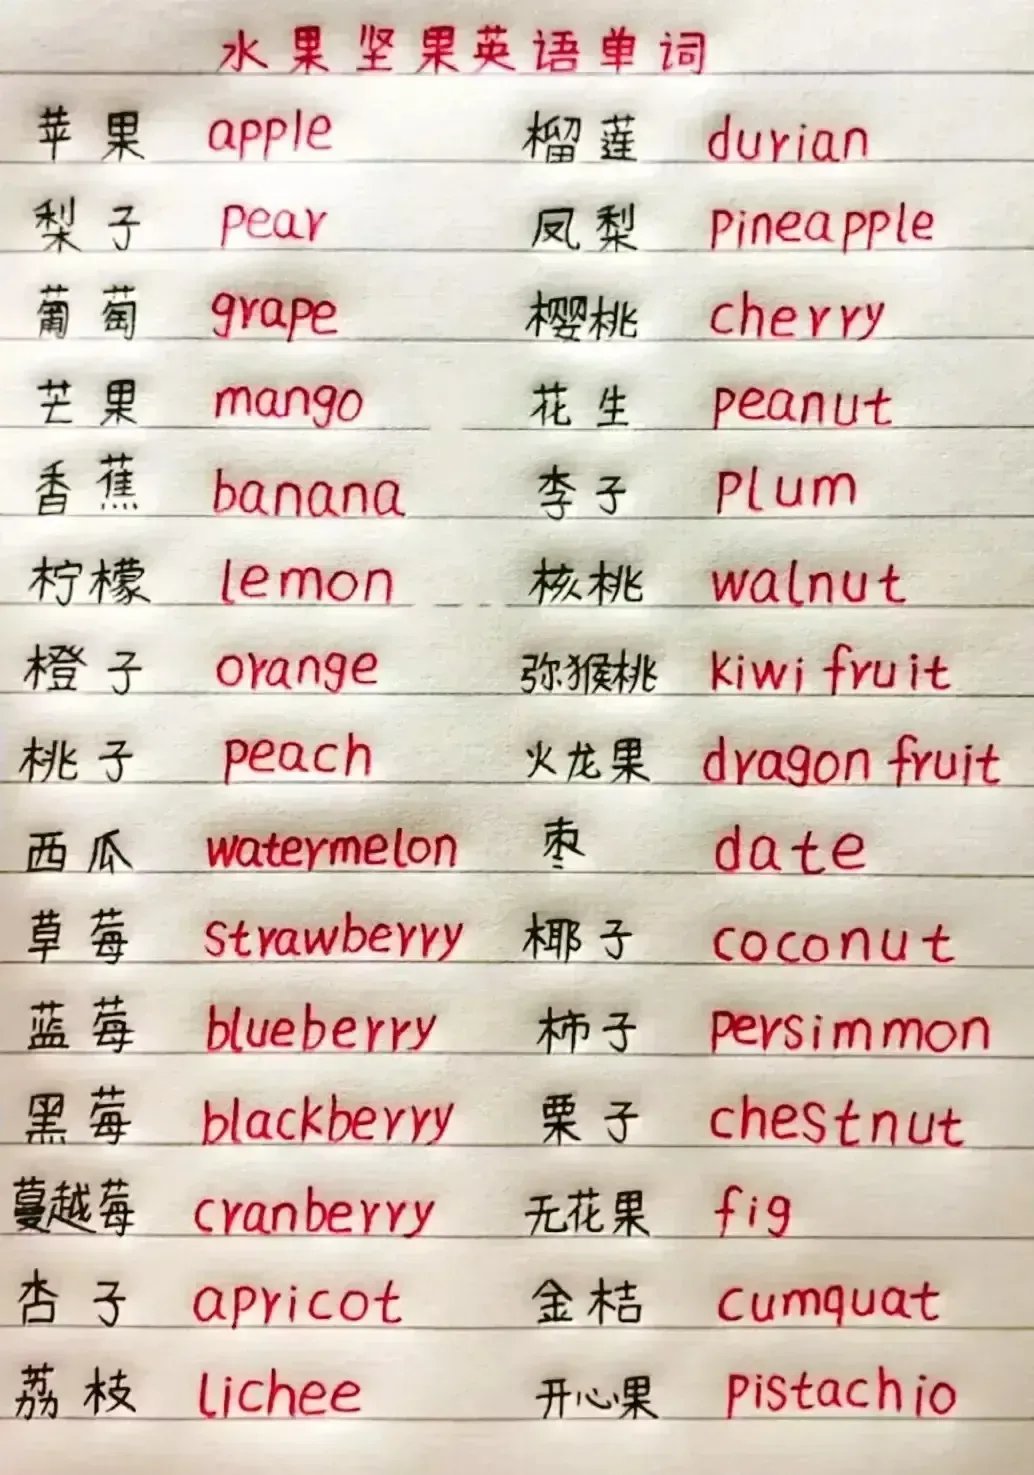 水果坚果英语单词
苹果 apple 榴莲 durian
梨子 pear 凤梨 pineapple
葡萄 grape 樱桃 cherry
芒果 mango 花生 peanut
香蕉 banana 李子 plum
柠檬 lemon 核桃 walnut
橙子 orange 弥猴桃 kiwi fruit
桃子 peach 火龙果 dragon fruit
西瓜 watermelon 枣 date
草莓 strawberry 椰子 coconut
蓝莓 blueberry 柿子 persimmon
黑莓 blackberry 栗子 chestnut
蔓越莓 cranberry 无花果 fig
杏子 apricot 金桔 cumquat
荔枝 lichee 开心果 pistachio